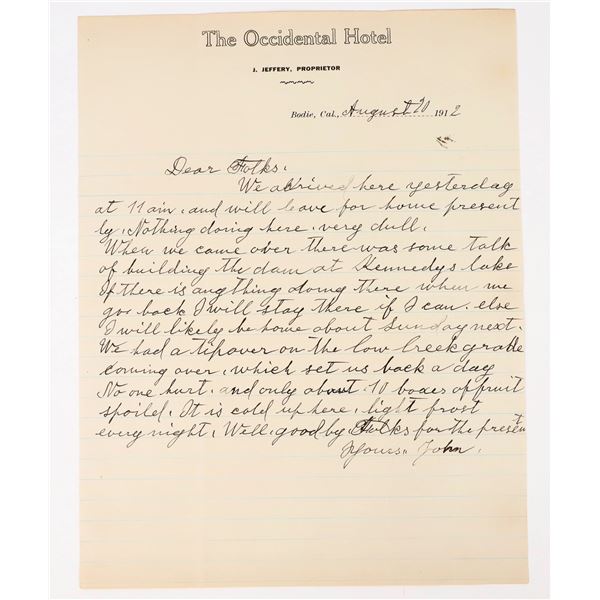 The Occidental Hotel
J. JEFFERY, PROPRIETOR
Bodie, Cal., August 20 1912
Dear Folks.
We arrived here yesterday
at 11 am. and will leave for home present
ly. Nothing doing here, very dull.
When we came over there was some talk
of building the dam at Kennedys lake
If there is anything doing there when we
go back I will stay there if I can. else
I will likely be home about Sunday next.
We had a tipover on the low Creek grade
coming over, which set us back a day
No one hurt, and only about 10 boxes of fruit
spoiled. It is cold up here, light frost
every night. Well, good by Folks for the present
Yours. John.